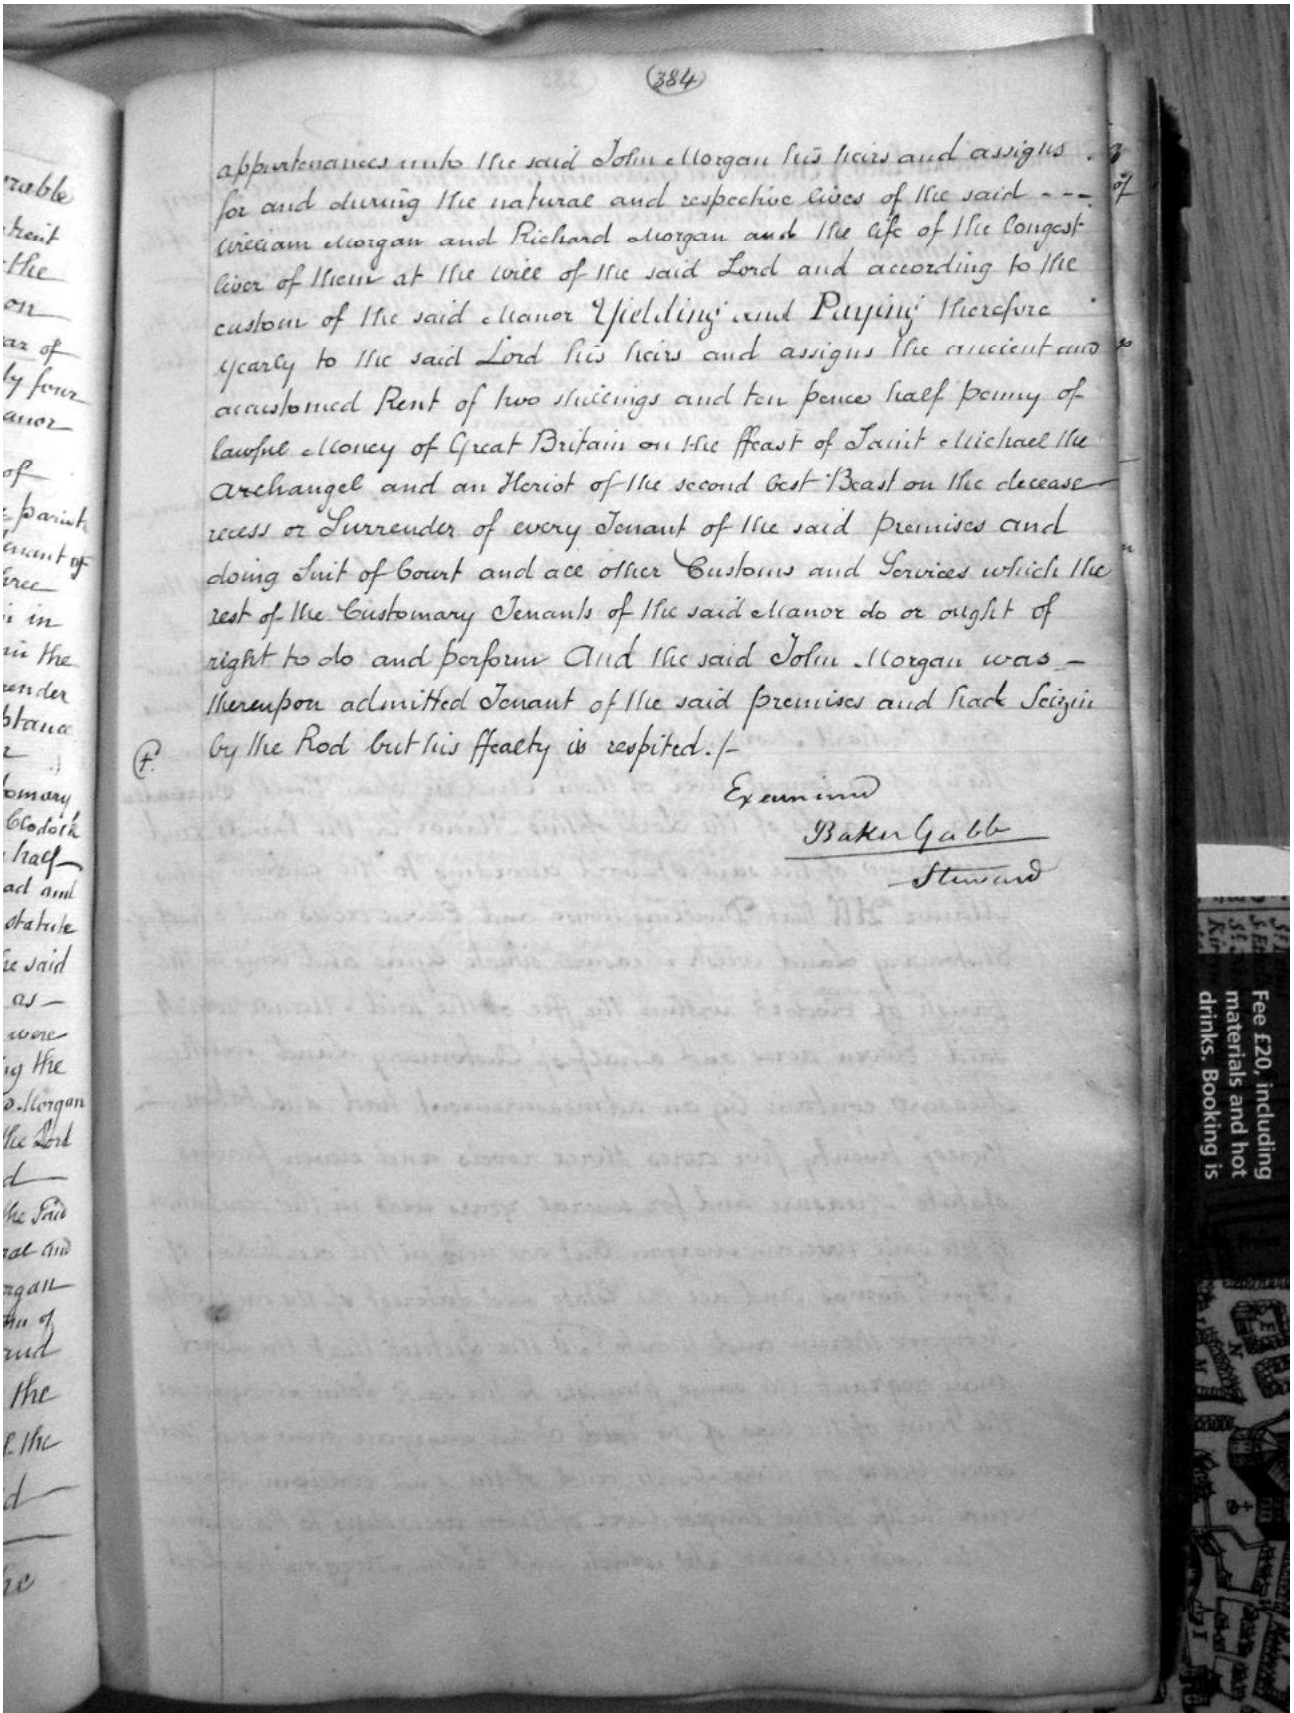 (384)
appurtenances unto the said John Morgan his heirs and assigns
for and during the natural and respective lives of the said - - -
William Morgan and Richard Morgan and the life of the longest
liver of them at the will of the said Lord and according to the
custom of the said Manor Yielding and Paying therefore
yearly to the said Lord his heirs and assigns the ancient and
accustomed Rent of two shillings and ten pence half penny of
lawful Money of Great Britain on the ffeast of Saint Michael the
Archangel and an Heriot of the second best Beast on the decease
recess or Surrender of every Tenant of the said premises and
doing Suit of Court and all other Customs and Services which the
rest of the Customary Tenants of the said Manor do or ought of
right to do and perform And the said John Morgan was –
thereupon admitted Tenant of the said premises and had Seizin
by the Rod but his ffealty is respited. /-
Examined
Baker Gabb
Steward
rable
the
on
ar of
ly four
anor
of
parish
enant of
hree
in
in the
render
omary
Clodock
half
ad and
statute
he said
as –
were
ng the
Morgan
the Lord
d
the said
organ
and
the
the
d
he
Fee £20, including
materials and hot
drinks. Booking is